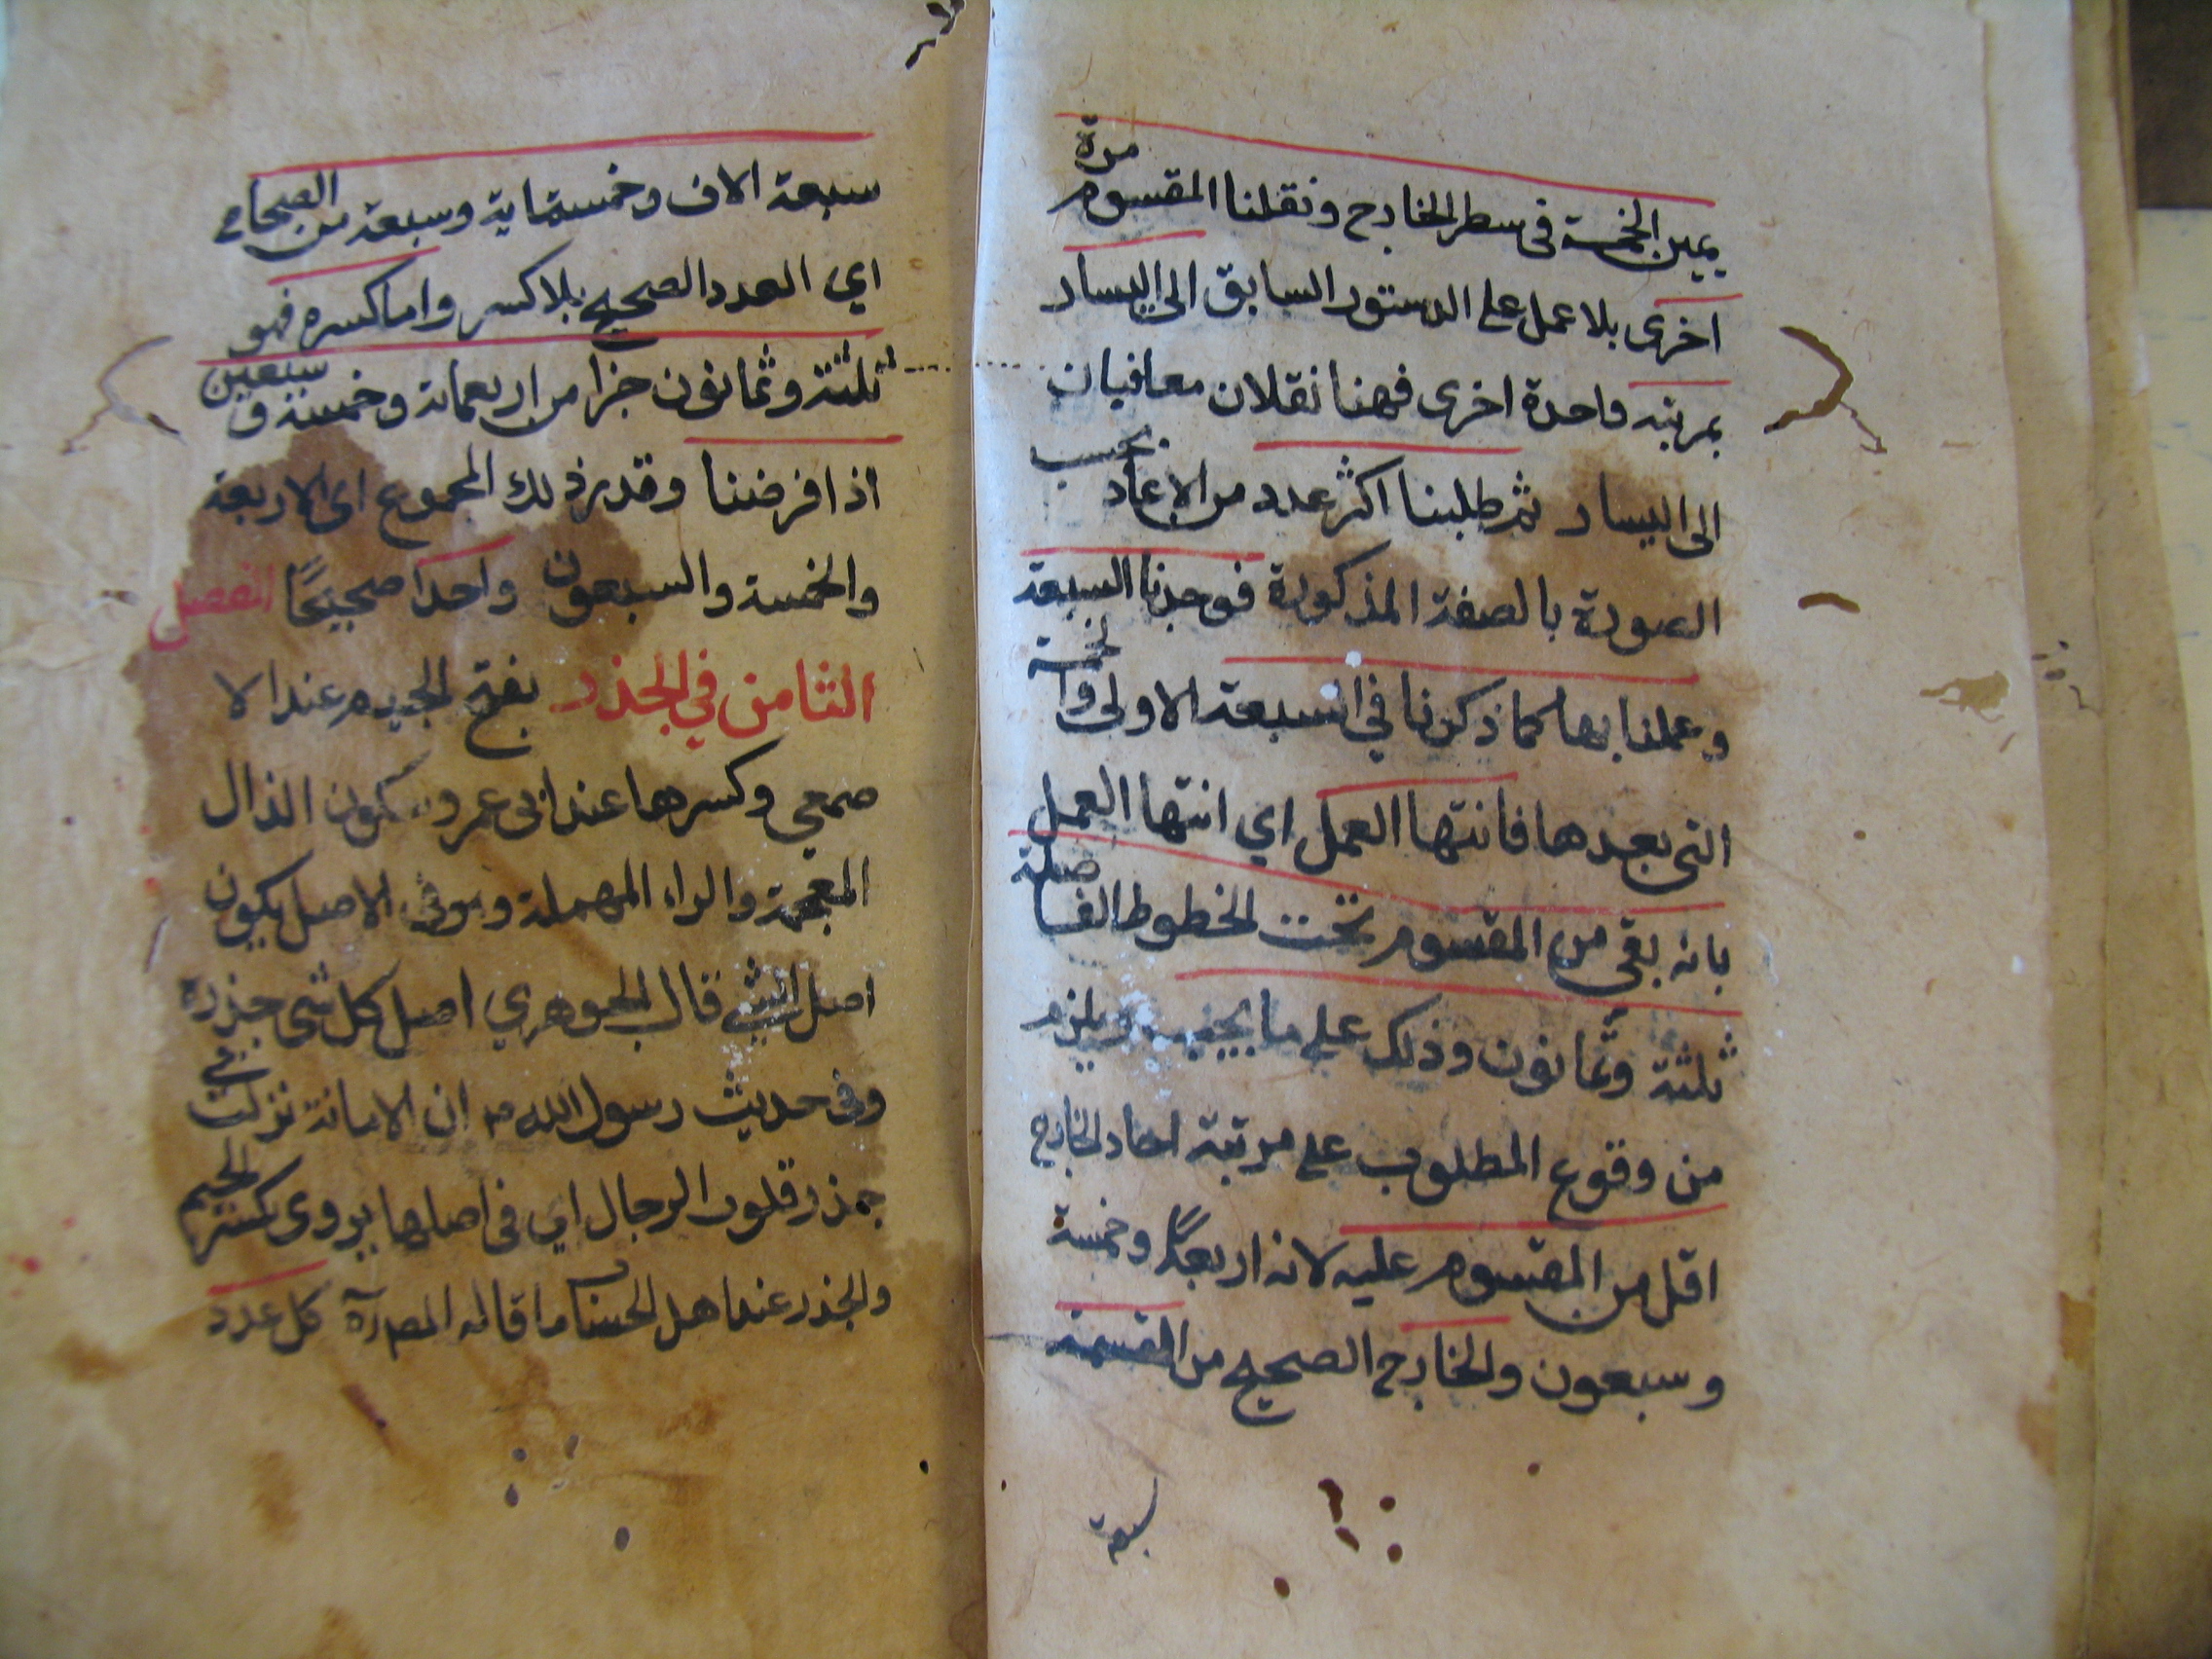 يمين الخمسة فى سطر الخارج ونقلنا المقسوم مرة
اخرى بلا عمل على الدستور السابق الى اليسار
بمرتبه واحدة اخرى فههنا نقلان معافيان
الى اليسار ثم طلبنا اكثر عدد من الاعاد بحسب
الصورة بالصفة المذكورة فوجدنا السبعة
وعملنا بها كما ذكرنا في السبعة الاولى والخمسة
التى بعدها فانتها العمل اي انتها العمل
بانه بقى من المقسوم تحت الخطوط الفاضلة
ثلثة وثمانون وذلك على ما يجب ويلزم
من وقوع المطلوب على مرتبة احاد الخارج
اقل من المقسوم عليه لانه اربعة وخمسة
وسبعون والخارج الصحيح من القسمة
سبعة
سبعة الاف وخمسماية وسبعة من الصحاح
اي العدد الصحيح بلا كسر واما كسره فهو
ثلثة وثمانون جزا من اربعماة وخمسة و سبعين
اذا فرضنا وقدر ذلك المجموع اى الاربعة
والخمسة والسبعون واحدا صحيحًا الفصل
الثامن في الجذر بفتح الجيم عند الا
صمعي وكسرها عند ابى عمر وسكون الذال
المعجمة والراء المهملة وهو فى الاصل يكون
اصل الشي قال الجوهري اصل كل شى جذره
وفى حديث رسول الله ص ان الامانة نزلت في
جذر قلوب الرجال اي فى اصلها يروى بكسر الجيم
والجذر عند اهل الحساب ما قاله المصره كل عدد